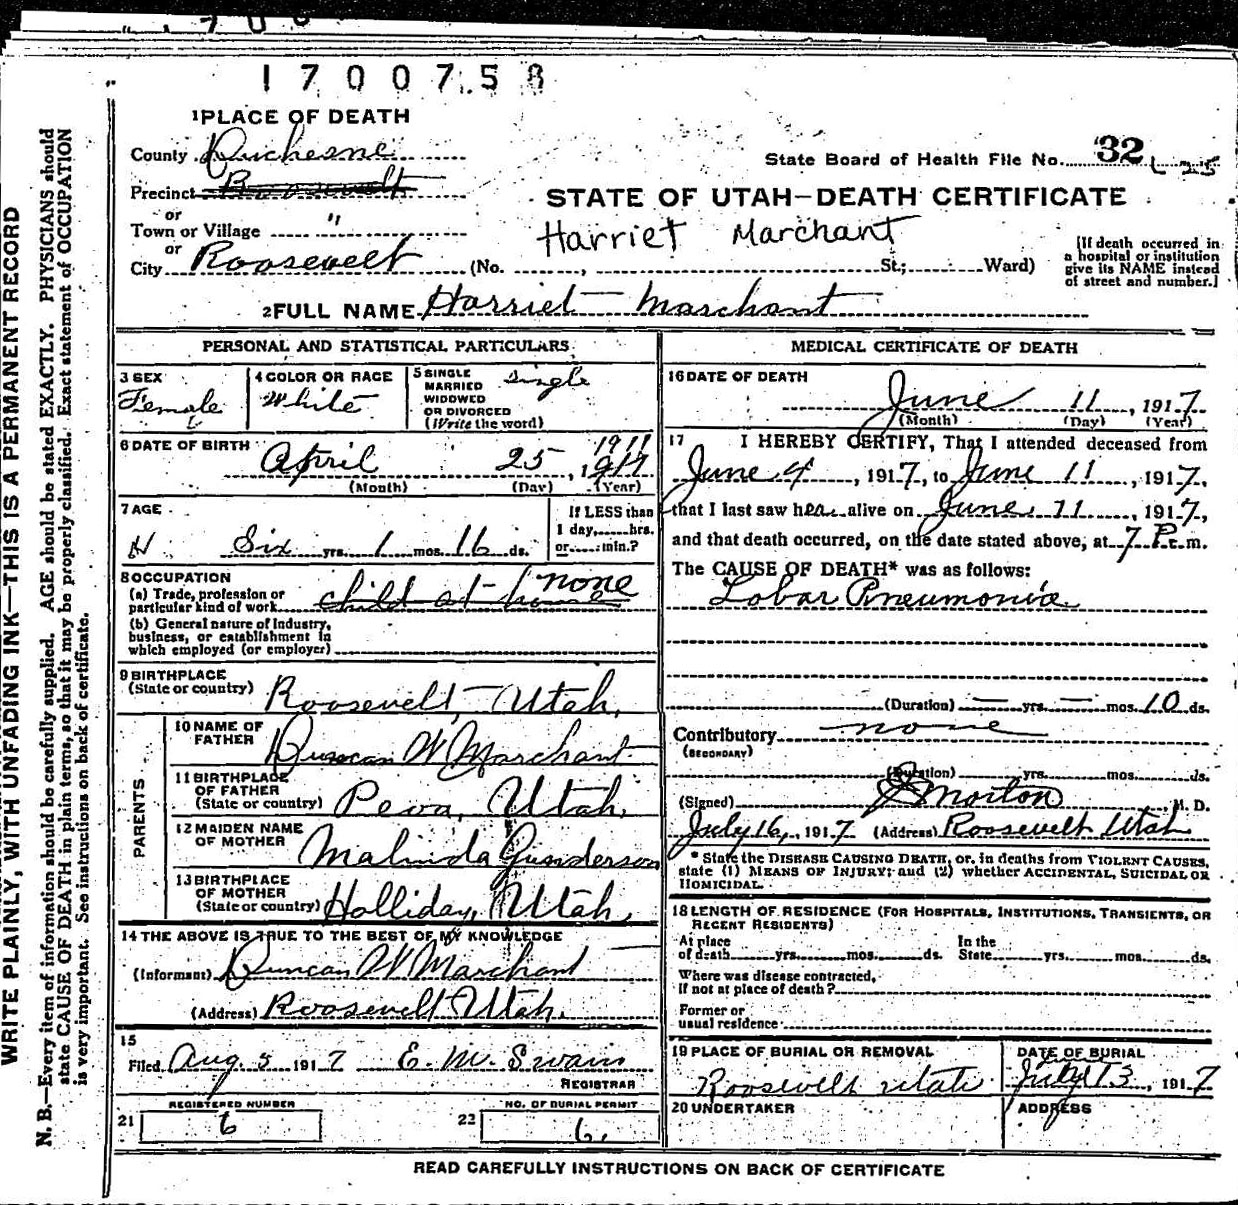 1700758
1 PLACE OF DEATH
County Duchesne
State Board of Health File No. 32
Precinct Roosevelt
STATE OF UTAH—DEATH CERTIFICATE
or
Town or Village "
Harriet Marchant
or
City Roosevelt (No. , St.; Ward)
[If death occurred in
a hospital or institution
give its NAME instead
of street and number.]
2 FULL NAME Harriet Marchant
PERSONAL AND STATISTICAL PARTICULARS
3 SEX
Female
4 COLOR OR RACE
White
5 SINGLE
MARRIED
WIDOWED
OR DIVORCED
(Write the word)
Single
6 DATE OF BIRTH
1911
April 25, 1917
(Month) (Day) (Year)
7 AGE
Six yrs. 1 mos. 16 ds.
If LESS than
1 day, hrs.
or min.?
8 OCCUPATION
(a) Trade, profession or
particular kind of work child at home none
(b) General nature of industry,
business, or establishment in
which employed (or employer)
9 BIRTHPLACE
(State or country) Roosevelt Utah.
PARENTS
10 NAME OF
FATHER Duncan W Marchant
11 BIRTHPLACE
OF FATHER
(State or country) Peoa, Utah.
12 MAIDEN NAME
OF MOTHER Malinda Gunderson
13 BIRTHPLACE
OF MOTHER
(State or country) Holliday, Utah.
14 THE ABOVE IS TRUE TO THE BEST OF MY KNOWLEDGE
(Informant) Duncan W Marchant
(Address) Roosevelt Utah.
15
Filed Aug. 5 1917 E. M. Swain
REGISTRAR
REGISTERED NUMBER
21 6
NO. OF BURIAL PERMIT
22 6.
MEDICAL CERTIFICATE OF DEATH
16 DATE OF DEATH
June 11, 1917
(Month) (Day) (Year)
17 I HEREBY CERTIFY, That I attended deceased from
June 4, 1917, to June 11, 1917,
that I last saw her alive on June 11, 1917,
and that death occurred, on the date stated above, at 7 P. m.
The CAUSE OF DEATH* was as follows:
Lobar Pneumonia
(Duration) — yrs. — mos. 10 ds.
Contributory none
(SECONDARY)
(Duration) yrs. mos. ds.
(Signed) Morton, M. D.
July 16, 1917 (Address) Roosevelt Utah
* State the DISEASE CAUSING DEATH, or, in deaths from VIOLENT CAUSES,
state (1) MEANS OF INJURY; and (2) whether ACCIDENTAL, SUICIDAL OR
HOMICIDAL.
18 LENGTH OF RESIDENCE (FOR HOSPITALS, INSTITUTIONS, TRANSIENTS, OR
RECENT RESIDENTS)
At place
of death yrs. mos. ds.
In the
State yrs. mos. ds.
Where was disease contracted,
if not at place of death?
Former or
usual residence
19 PLACE OF BURIAL OR REMOVAL
Roosevelt
DATE OF BURIAL
13, 1917
20 UNDERTAKER
ADDRESS
READ CAREFULLY INSTRUCTIONS ON BACK OF CERTIFICATE
WRITE PLAINLY, WITH UNFADING INK—THIS IS A PERMANENT RECORD
N. B.—Every item of information should be carefully supplied. AGE should be stated EXACTLY. PHYSICIANS should
state CAUSE OF DEATH in plain terms, so that it may be properly classified. Exact statement of OCCUPATION
is very important. See instructions on back of certificate.